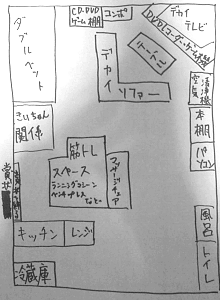 ダブルベット
CD・DVD
ゲーム棚
コンポ
デカイ
テレビ
DVDレコーダー・ゲーム機
テーブル
デカイ
ソファー
空気
清浄機
本棚
パソコン
さいちゃん
関係
筋トレ
スペース
ランニングマシーン
ベンチプレス
など
マッサージチェア
キッチン
レンジ
冷蔵庫
風呂
トイレ